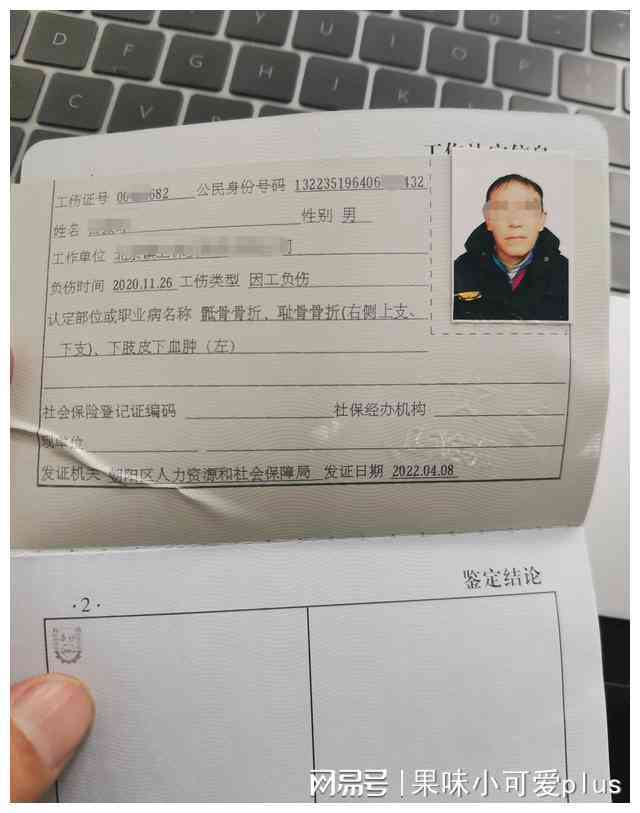 D F G H U I O P
C V B N J K L
工伤认定信息
工伤证号 00 682 公民身份号码 132235196406 432
姓名 性别 男
工作单位
负伤时间 2020.11.26 工伤类型 因工负伤
认定部位或职业病名称 骶骨骨折、耻骨骨折(右侧上支、
下支)、下肢皮下血肿（左）
社会保险登记证编码 社保经办机构
现单位
发证机关 朝阳区人力资源和社会保障局 发证日期 2022.04.08
鉴定结论
·2·
网易号 | 果味小可爱plus